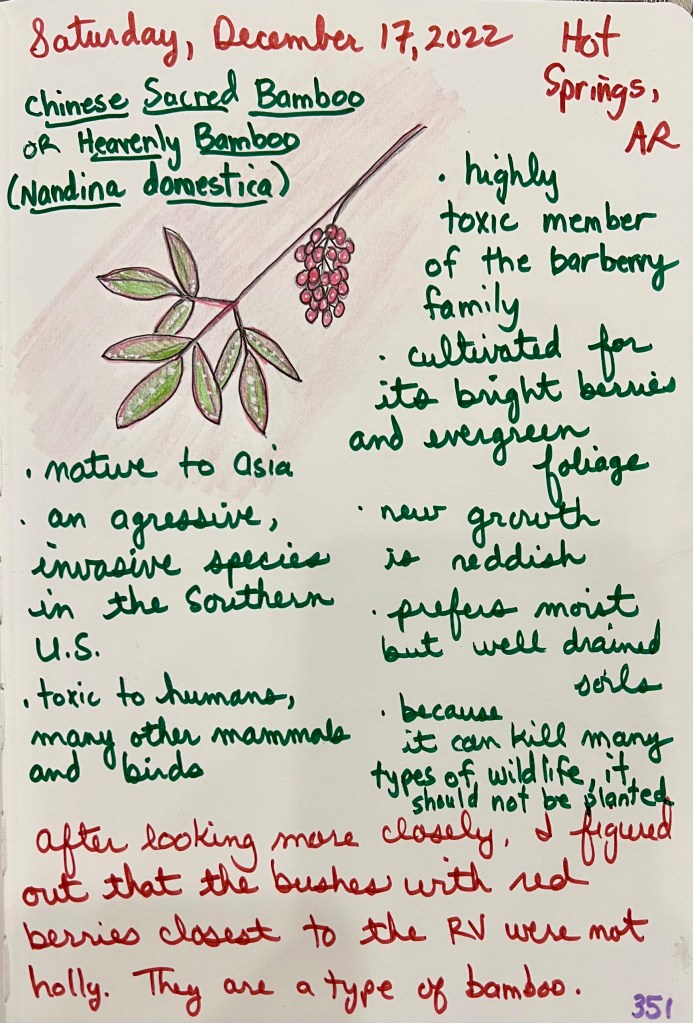 Saturday, December 17, 2022
Hot
Springs,
AR
Chinese Sacred Bamboo
OR Heavenly Bamboo
(Nandina domestica)
· native to Asia
· an agressive,
invasive species
in the Southern
U.S.
· toxic to humans,
many other mammals
and birds
· highly
toxic member
of the barberry
family
· cultivated for
its bright berries
and evergreen
foliage
· new growth
is reddish
· prefers moist
but well drained
soils
· because
it can kill many
types of wildlife, it
should not be planted
After looking more closely, I figured
out that the bushes with red
berries closest to the RV were not
holly. They are a type of bamboo.
351